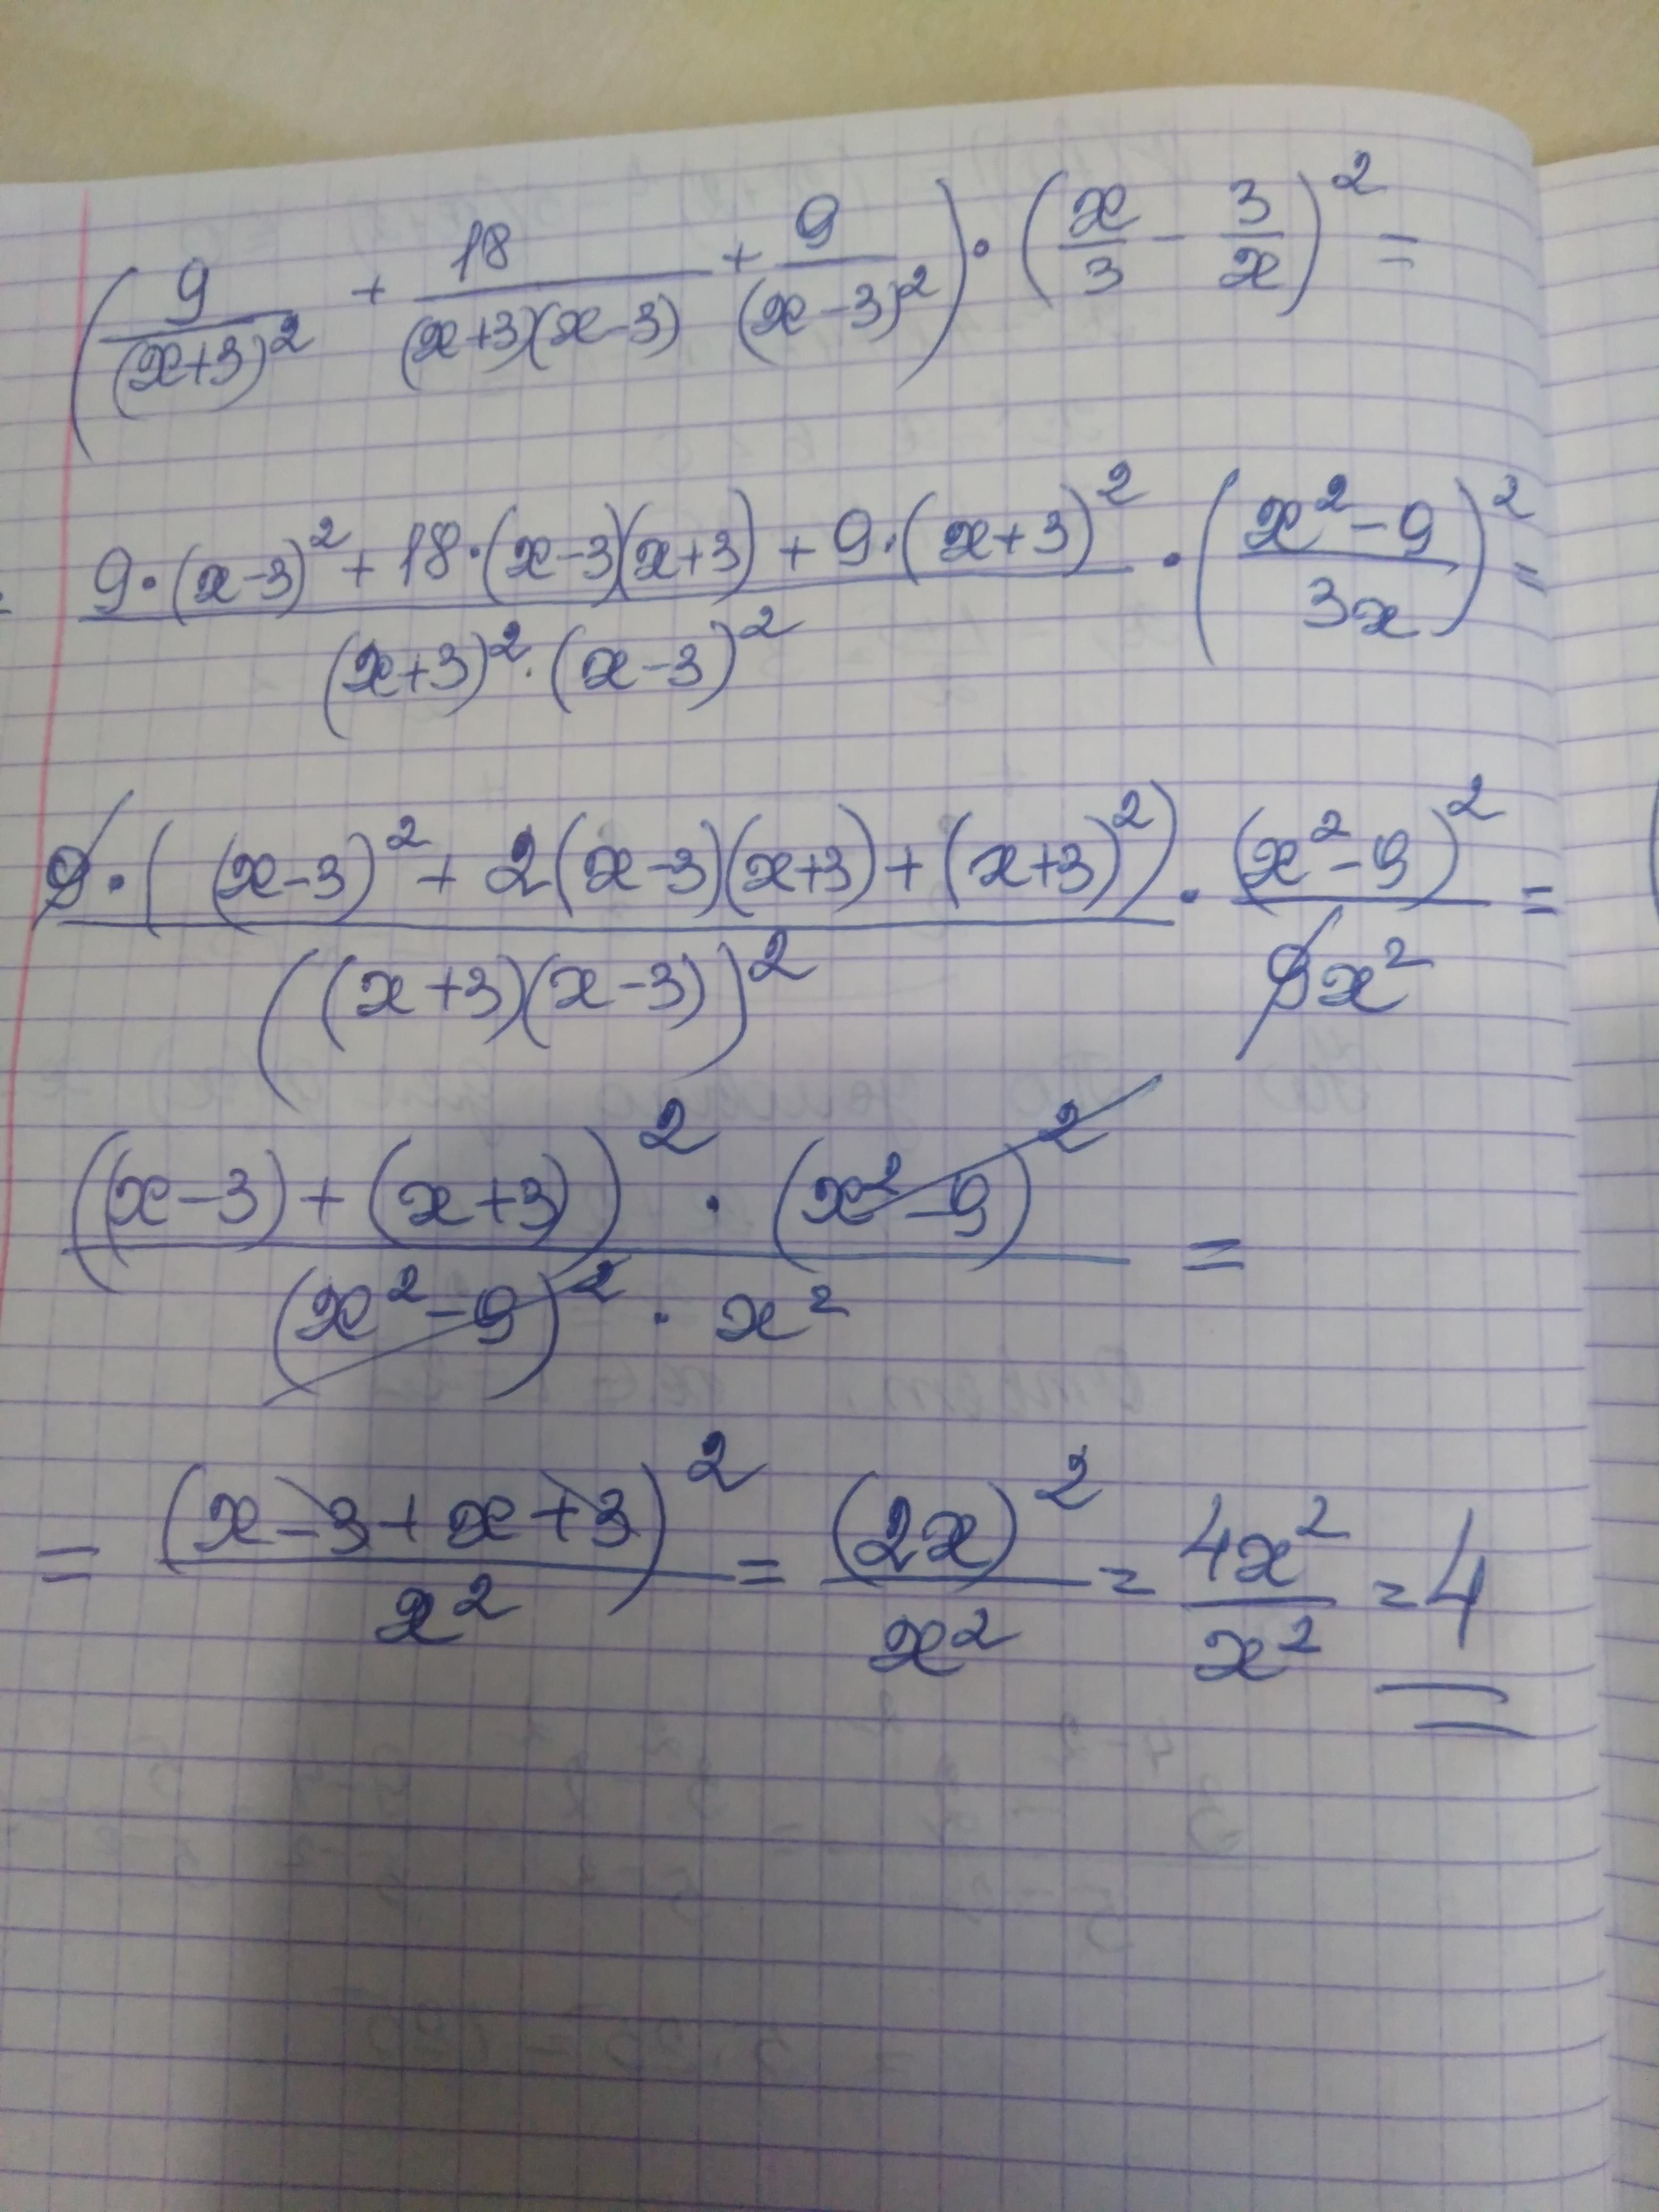 (9/(x+3)² + 18/((x+3)(x-3)) + 9/(x-3)²) · (x/3 - 3/x)² =
= (9·(x-3)² + 18·(x-3)(x+3) + 9·(x+3)²)/((x+3)²·(x-3)²) · ((x²-9)/(3x))² =
9·((x-3)² + 2(x-3)(x+3) + (x+3)²)/((x+3)(x-3))² · (x²-9)²/(9x²) =
((x-3)+(x+3))² · (x²-9)²/((x²-9)² · x²) =
= (x-3+x+3)²/x² = (2x)²/x² = 4x²/x² = 4